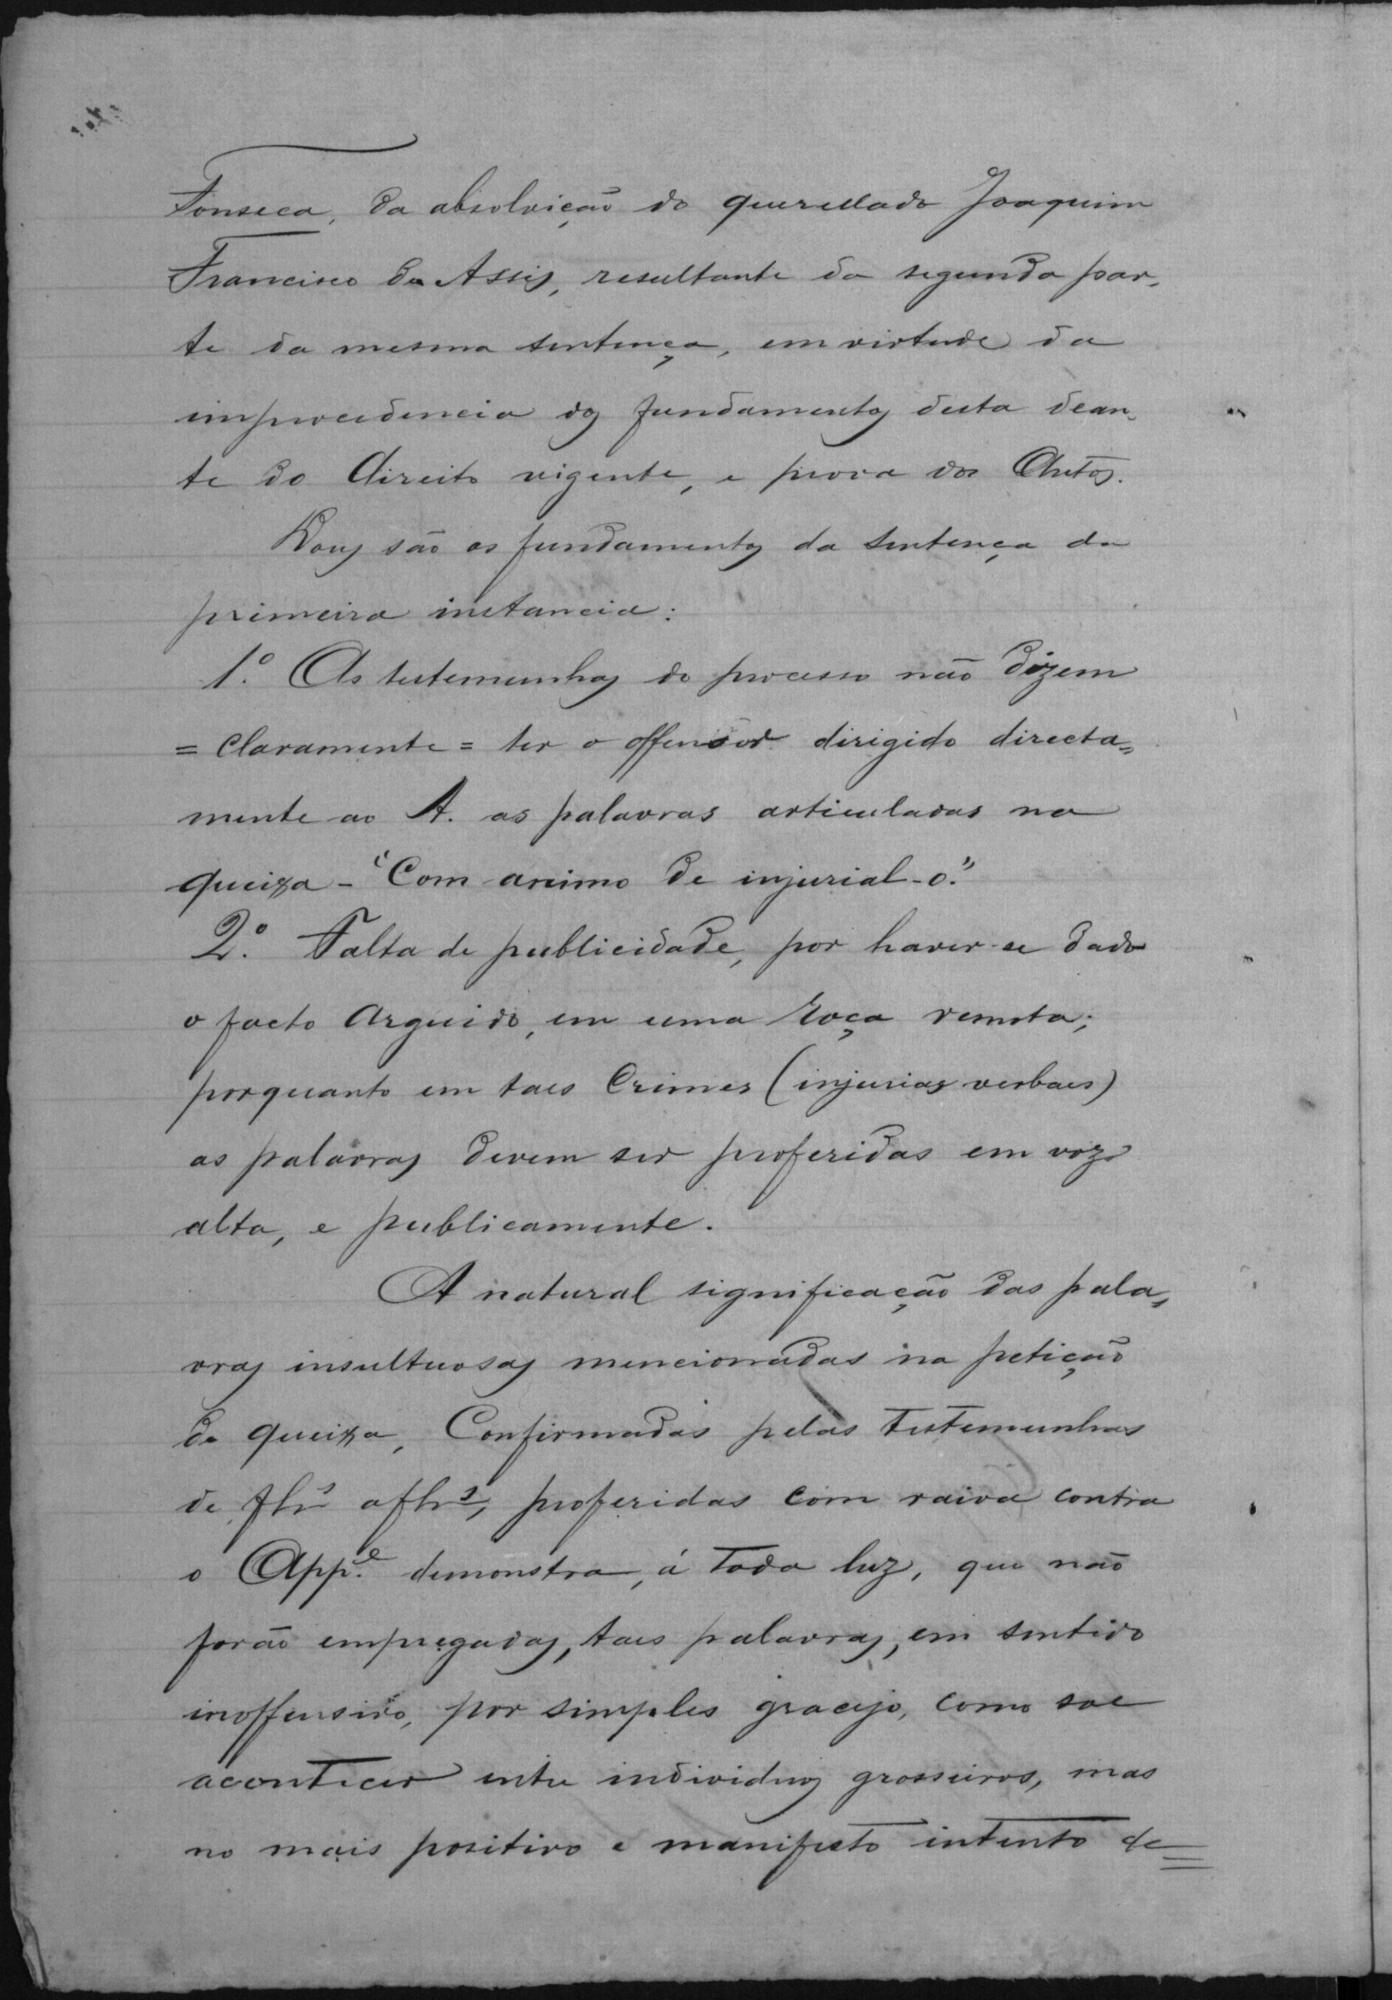 Fonseca, da absolvição do querellado Joaquim
Francisco de Assis, resultante da segunda par-
te da mesma sentença, em virtude da
improcedencia dos fundamentos desta dean-
te do Direito vigente, e prova dos Autos.
Dous são os fundamentos da sentença da
primeira instancia:
1.º As testemunhas do processo não dizem
= claramente = ter o offensor dirigido directa=
mente ao A. as palavras articuladas na
queixa - "Com animo de injurial-o."
2.º Falta de publicidade, por haver-se dado
o facto arguido, em uma roça remota;
porquanto em taes crimes (injurias verbaes)
as palavras devem ser proferidas em voz
alta, e publicamente.
A natural significação das pala=
vras insultuosas mencionadas na petição
de queixa, Confirmadas pelas testemunhas
de flhs a flhs, proferidas com raiva contra
o App.e demonstra, á toda luz, que não
forão empregadas, taes palavras, em sentido
inoffensivo, por simples gracejo, como soe
acontecer entre individuos grosseiros, mas
no mais positivo e manifesto intento de=